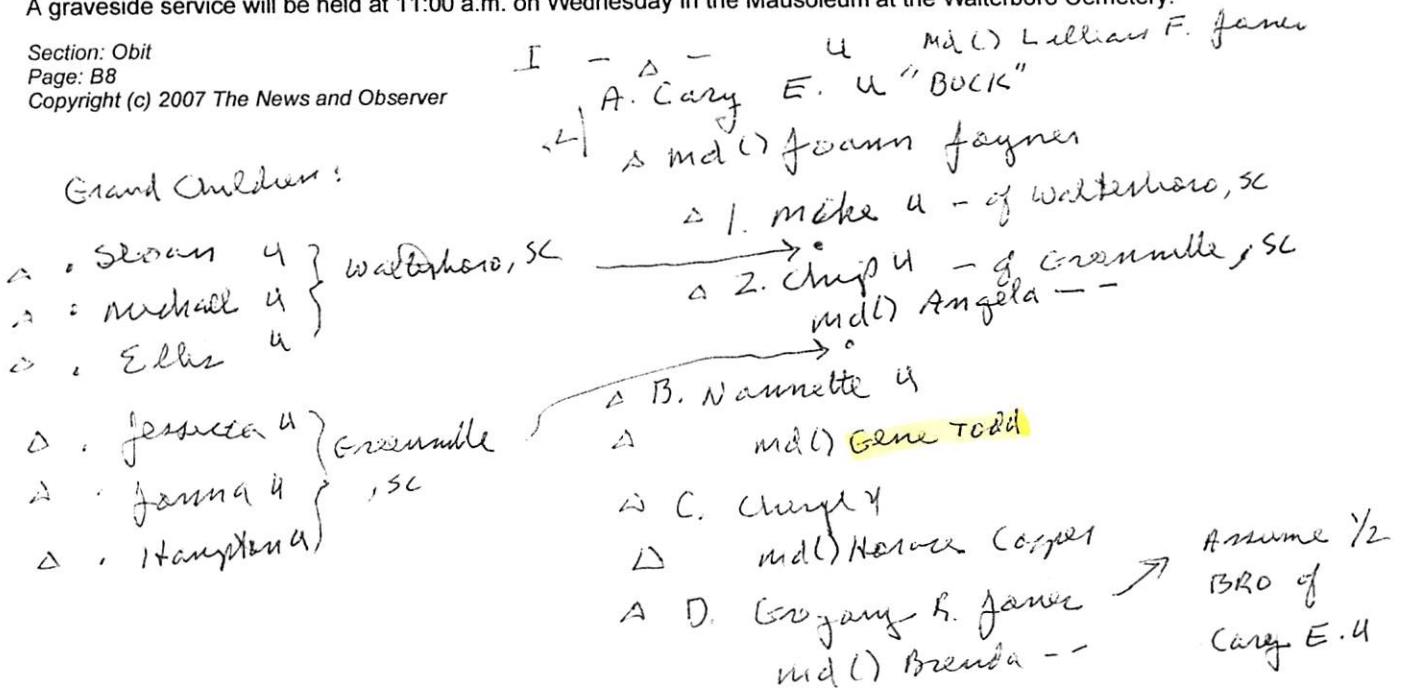 A graveside service will be held at 11:00 a.m. on Wednesday in the Mausoleum at the Walterboro Cemetery.
Section: Obit
Page: B8
Copyright (c) 2007 The News and Observer
I - Δ - U Md () Lillian F. Jones
A. Cary E. U "BUCK"
Δ md () Joann Joyner
Δ 1. Mike U - of Walterboro, SC
Δ 2. Chip U - of Greenville, SC
md () Angela - -
Δ B. Nannette U
Δ md () Gene Todd
Δ C. Cheryl U
Δ md () Horace Casper
Δ D. Gregory R. Jones
md () Brenda - -
Assume 1/2
BRO of
Cary E. U
Grand Children:
Δ . Sloan U
Δ . Michael U
Δ . Ellis U
Walterboro, SC
Δ . Jessica U
Δ . Janna U
Δ . Hampton U
Greenville
, SC